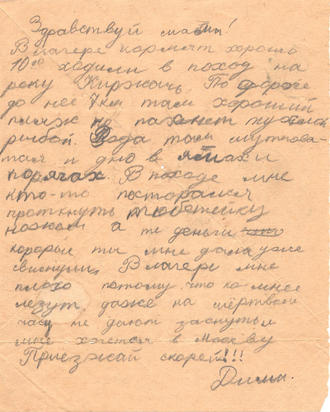 Здравствуй мать!
В лагере кормят хорошо
10го ходили в поход на
реку Киржач. По дороге
до неё 7км там хороший
пляж но пахнет тухлой
рыбой. Вода там мутнова-
тая и дно в ямах и
корягах. В походе мне
кто-то постарался
проткнуть тюбетейку
ножом а те деньги
которые ты мне дала уже
свиснули. В лагере мне
плохо потому что ко мне все
лезут даже на мёртвом
часу не дают заснуть и
мне хочется в Москву
Приезжай скорей!!!
Дима.